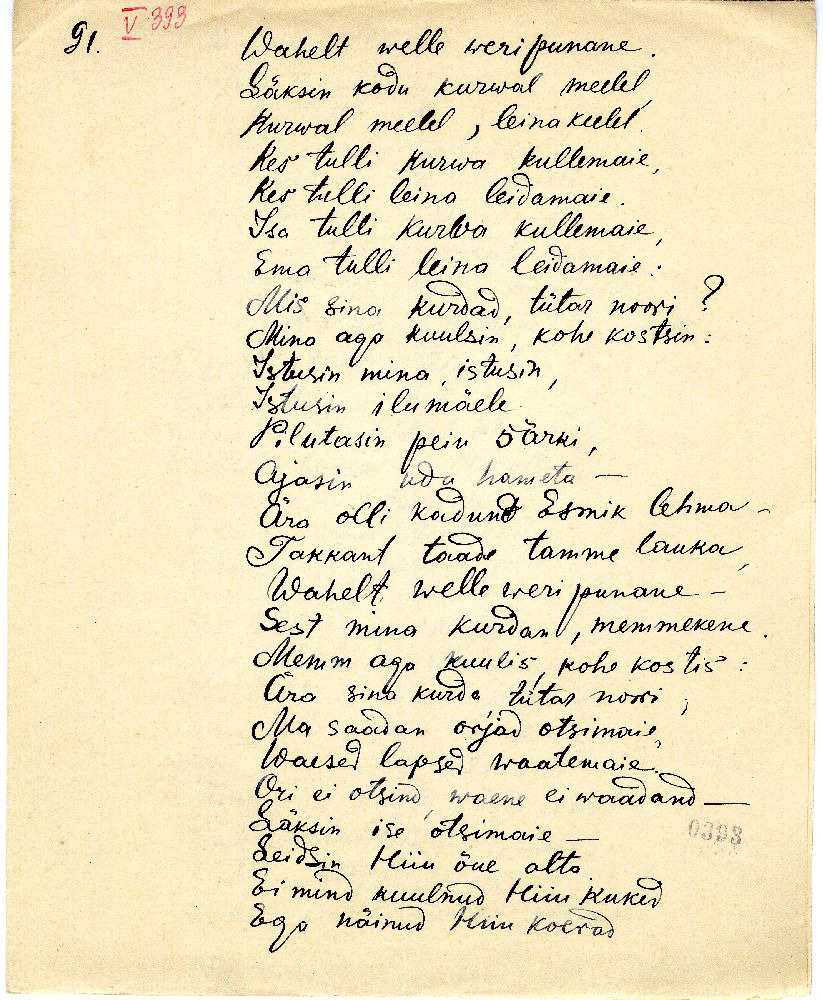 91.
V 393
Wahelt welle weripunane.
Läksin kodu kurwal meelel,
Kurwal meelel, leina keelel.
Kes tulli kurwa kullemaie,
Kes tulli leina leidamaie.
Isa tulli kurwa kullemaie,
Ema tulli leina leidamaie:
Mis sina kurdad, tütar noori?
Mina aga kuulsin, kohe kostsin:
Istusin mina, istusin,
Istusin ilumäele
Pilutasin peiu särki,
Ajasin udu hameta —
Ära olli kadund Esmik lehma -
Takkant taade tamme lauka,
Wahelt welle weripunane -
Sest mina kurdan, memmekene.
Memm aga kuulis, kohe kostis:
Ära sina kurda tütar noori,
Ma saadan orjad otsimaie,
Waesed lapsed waatemaie.
Ori ei otsind, waene ei waadand —
Läksin ise otsimaie —
Leidsin Hiiu õue alta
Ei mind kuulnud Hiiu kuked
Ega näinud Hiiu koerad
0393